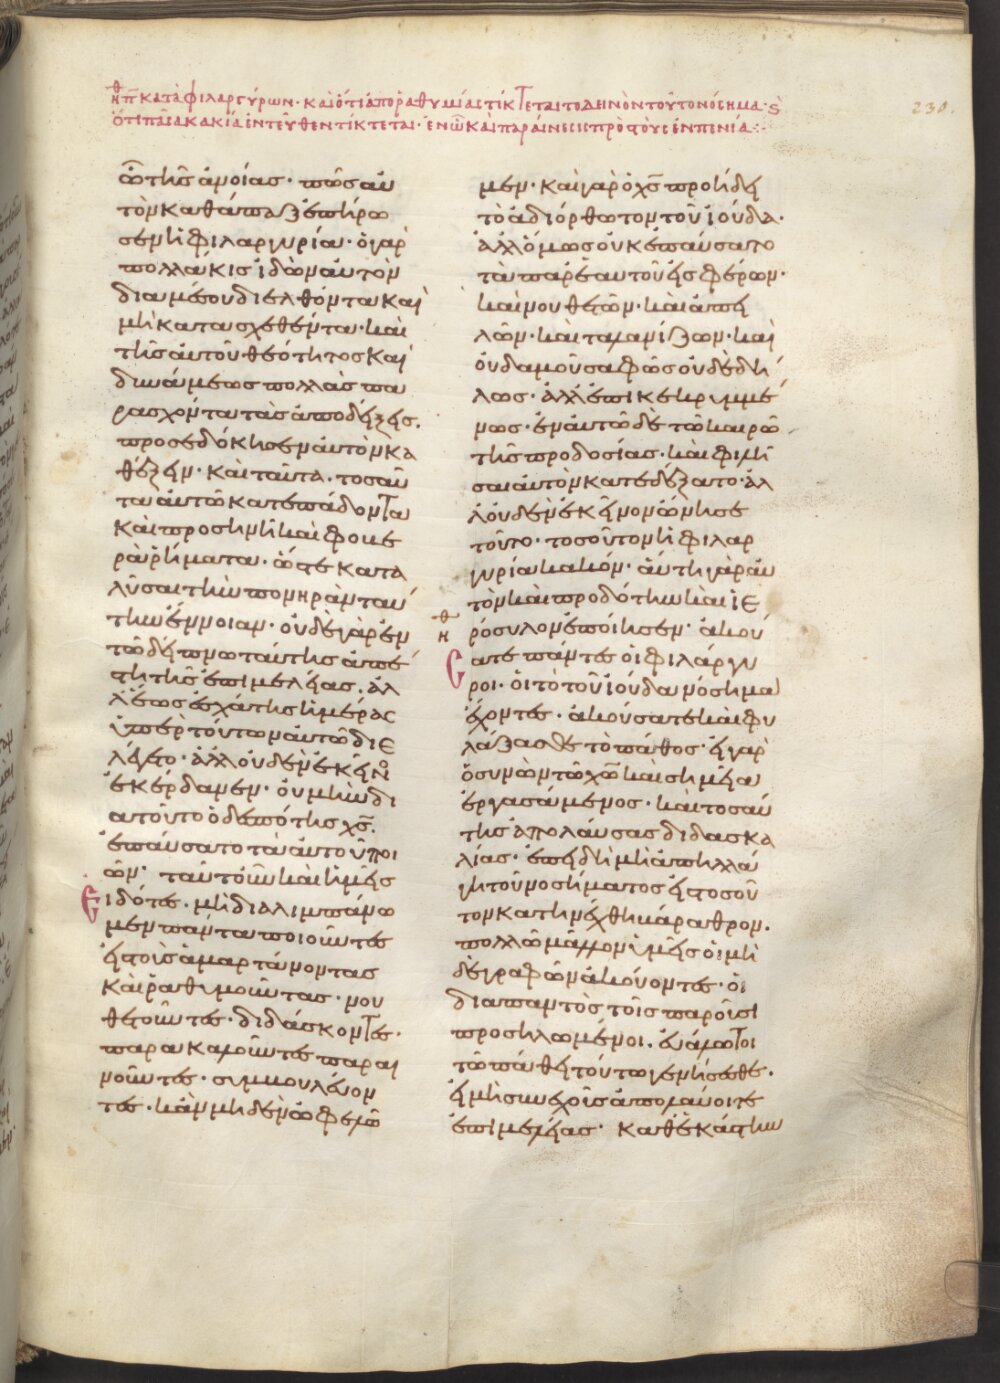 ηθ π̅ κατὰ φιλαργύρων· καὶ ὅτι ἀπο ῥαθυμίας τίκτεται το δεινὸν τοῦτο νόσημα· ϛ
ὅτι πᾶσα κακία ἐντεῦθεν τίκτεται· ἐν ὧ καὶ παραίνεσις πρὸς τοὺς ἐν πενία:-
230.
ὢ τῆς ἀνοίας· πῶς αὐ
τὸν καθάπαξ ἐπήρω
σεν ἡ φιλαργυρία· ὁ γὰρ
πολλάκις ἰδὼν αὐτὸν
δια μέσου διελθόντα καὶ
μὴ κατασχεθέντα· καὶ
τῆς αὐτοῦ θεότητος καὶ
δυνάμεως πολλὰς πα
ρασχόντα τὰς ἀποδείξεις.
προσεδόκησεν αὐτὸν κα
θέξειν· καὶ ταῦτα. τοσαῦ
τα αὐτῶ κατεπάδοντα
καὶ προσηνῆ καὶ φοβε
ρὰ ῥήματα· ὥστε κατα
λῦσαι τὴν πονηρὰν ταύ
την ἔννοιαν· οὐδὲ γὰρ ἐν
τῶ δείπνω ταύτης ἀπέ
στη τῆς ἐπιμελείας. ἀλ
λ' ἕως ἐσχάτης ἡμέρας
ὑπὲρ τούτων αὐτῶ διε
λέγετο· ἀλλ' οὐδὲν ἐκεῖνος
ἐκέρδανεν· οὐ μὴν δι
α τοῦτο ὁ δεσπότης χς̅.
ἐπαύσατο τὰ αὐτοῦ ποι
ῶν· ταῦτ' οὖν καὶ ἡμεῖς
εἰδότες. μὴ διαλιμπάνω
μεν πάντα ποιοῦντες
εἰς τοὺς ἁμαρτάνοντας
καὶ ῥαθυμοῦντας· νου
θετοῦντες· διδάσκοντες·
παρακαλοῦντες παραι
νοῦντες· συμβουλεύον
τες· κἂν μηδὲν ὠφελῶ
μεν· καὶ γὰρ ὁ χς̅ προήδει
τὸ ἀδιόρθωτον τοῦ ἰούδα·
ἀλλ' ὅμως οὐκ ἐπαύσατο
τὰ παρ' ἑαυτοῦ εἰσφέρων·
καὶ νουθετῶν· καὶ ἀπει
λῶν· καὶ ταλανίζων· καὶ
οὐδαμοῦ σαφῶς οὐδὲ δή
λως· ἀλλ' ἐπικεκρυμμέ
νως· ἐν αὐτῶ δὲ τῶ καιρῶ
τῆς προδοσίας· καὶ φιλῆ
σαι αὐτὸν κατεδέξατο· ἀλ
λ' οὐδὲν ἐκεῖνον ὤνησε
τοῦτο· τοσοῦτον ἡ φιλαρ
γυρία κακόν· αὕτη γὰρ αὐ
τὸν καὶ προδότην καὶ ἱε
ρόσυλον ἐποίησεν· ἀκού
ηθ
σατε πάντες οἱ φιλάργυ
ροι· οἱ τὸ τοῦ ἰούδα νόσημα
ἔχοντες· ἀκούσατε καὶ φυ
λάξασθε τὸ πάθος· εἰ γὰρ
ὁ συνὼν τῶ χῶ̅ καὶ σημεῖα
ἐργασάμενος· καὶ τοσαύ
της ἀπολαύσας διδασκα
λίας· ἐπειδὴ μὴ ἀπηλλά
γη τοῦ νοσήματος εἰς τοσοῦ
τον κατηνέχθη βάραθρον.
πολλῶ μᾶλλον ὑμεῖς οἱ μὴ
δὲ γραφῶν ἀκούοντες· οἱ
διαπαντὸς τοῖς παροῦσι
προσηλωμένοι. εὐάλωτοι
τῶ πάθει τούτω γενήσεσθε.
εἰ μὴ συνεχοῦς ἀπολαύοιτε
ἐπιμελείας· καθ' ἑκάστην